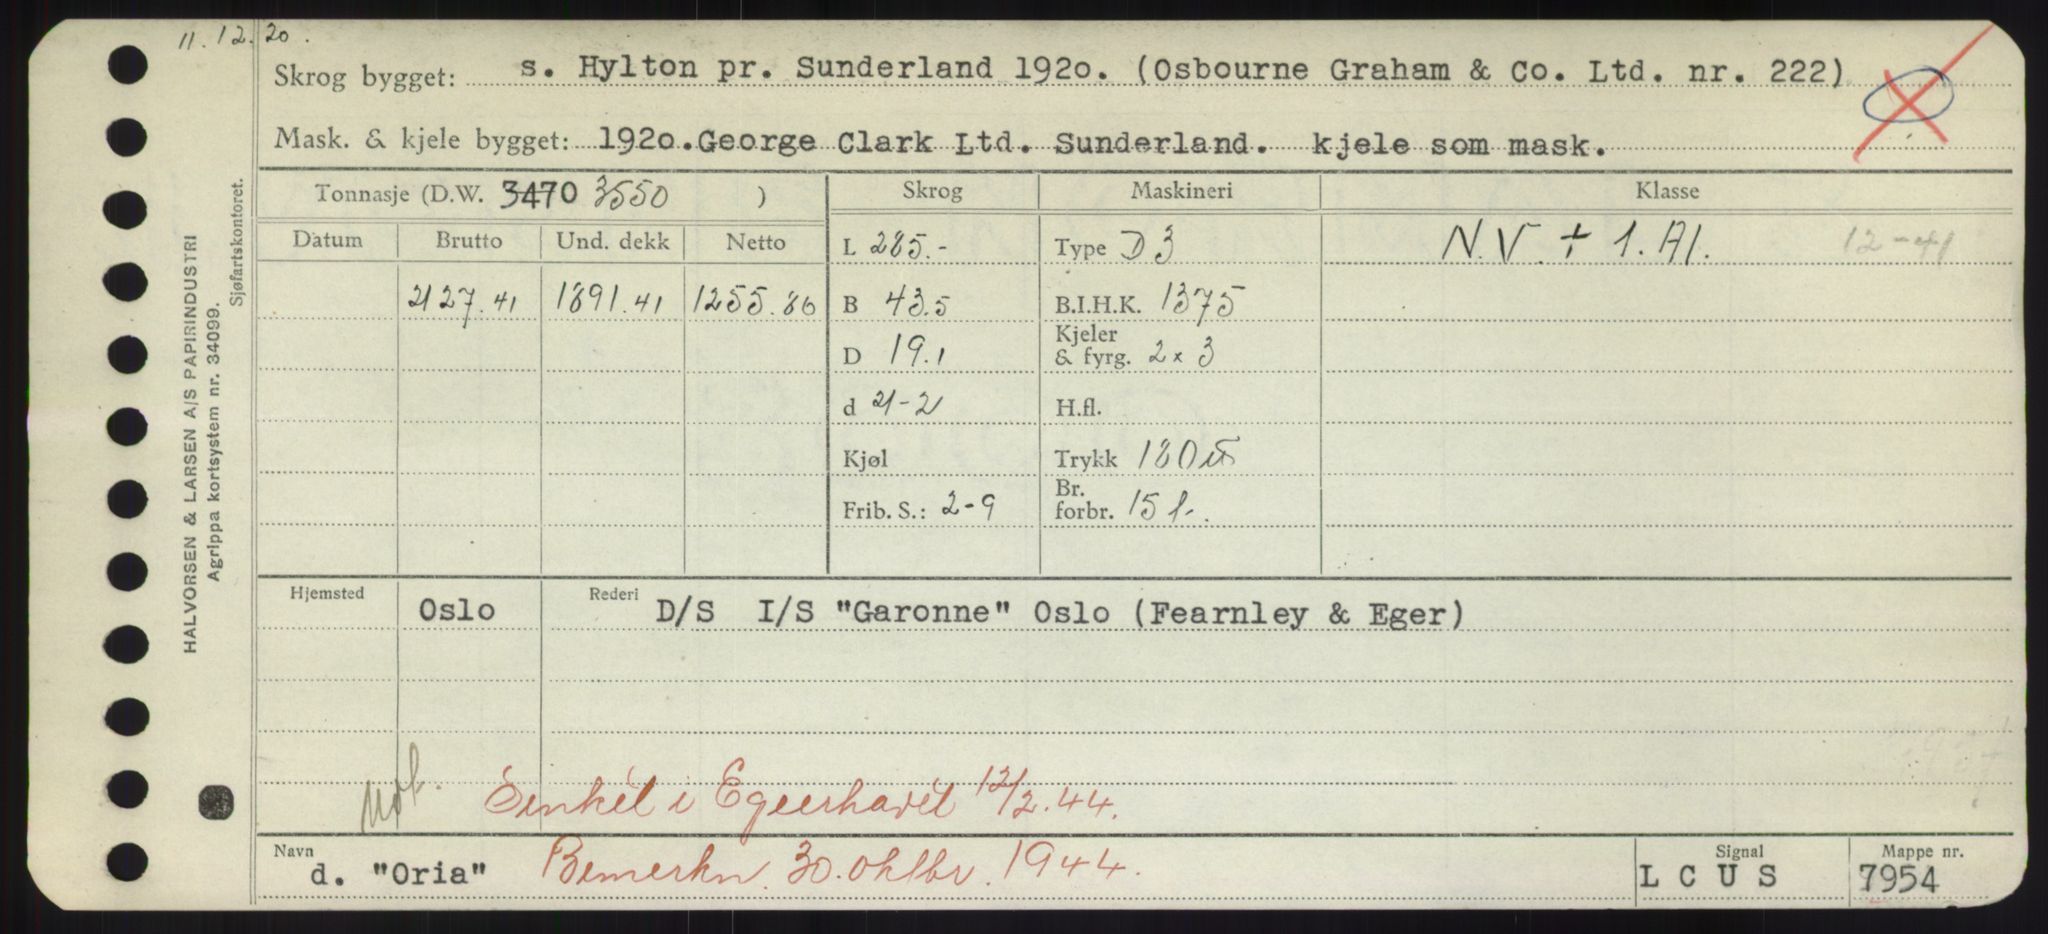 11.12.20.
Skrog bygget: s. Hylton pr. Sunderland 1920. (Osbourne Graham & Co. Ltd. nr. 222)
Mask. & kjele bygget: 1920.George Clark Ltd. Sunderland. kjele som mask.
Tonnasje (D.W. 3470 3550 ) Skrog Maskineri Klasse
Datum Brutto Und. dekk Netto L 285.- Type D3 N.V. + 1.A1. 12-41
2127.41 1891.41 1255.86 B 43.5 B.I.H.K. 1375
D 19.1 Kjeler & fyrg. 2x3
d 21-2 H.fl.
Kjøl Trykk 180
Frib. S.: 2-9 Br. forbr. 15
Hjemsted Oslo Rederi D/S I/S "Garonne" Oslo (Fearnley & Eger)
Senket i Egeerhavet 12/2.44.
Navn d. "Oria" Bemerkn. 30. oktbr. 1944. Signal LCUS Mappe nr. 7954
HALVORSEN & LARSEN A/S PAPIRINDUSTRI
Agrippa kortsystem nr. 34099.
Sjøfartskontoret.